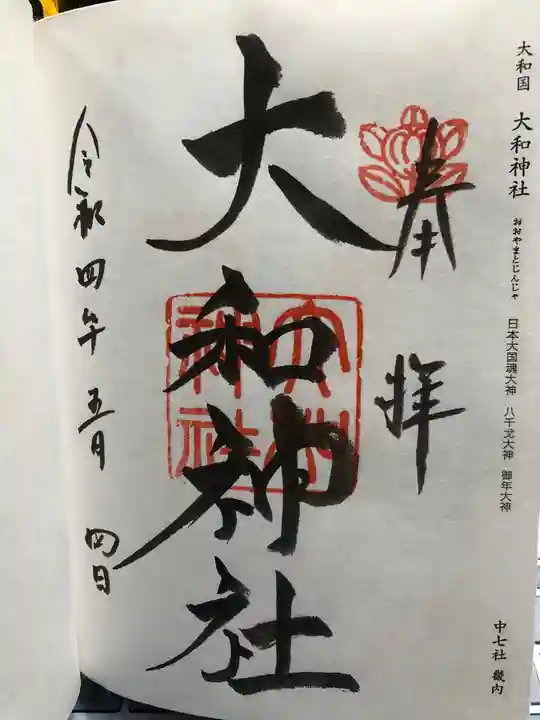 大和国 大和神社 おおやまとじんじゃ 日本大国魂大神 八千戈大神 御年大神
中七社 畿内
奉拝
大和神社
大和神社
令和四年五月四日